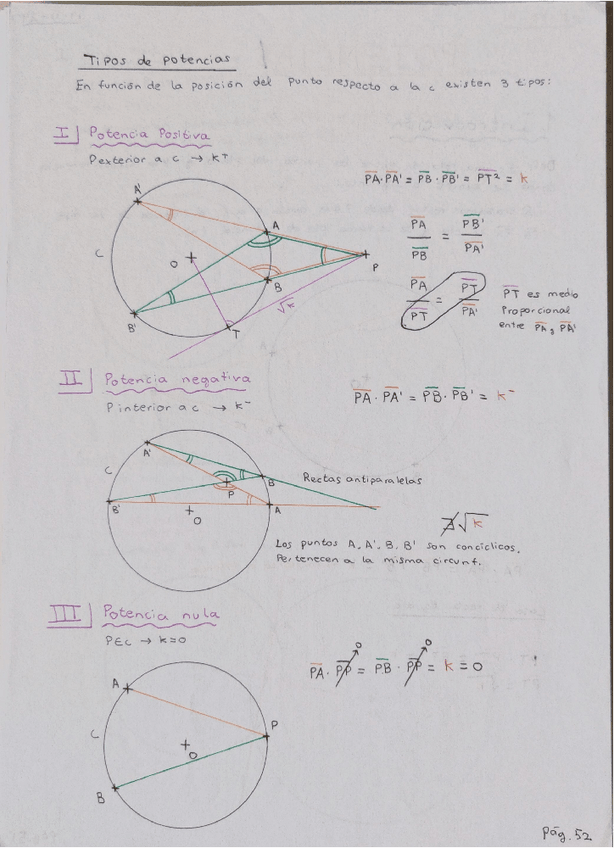 Tipos de potencias
En función de la posición del punto respecto a la c existen 3 tipos:
I Potencia Positiva
P exterior a c → k⁺
PA · PA' = PB · PB' = PT² = k
PA / PB = PB' / PA'
PA / PT = PT / PA'
PT es medio
proporcional
entre PA y PA'
A'
A
C
O
P
B
√k
B'
T
II Potencia negativa
P interior a c → k⁻
PA · PA' = PB · PB' = k⁻
A'
C
B
Rectas antiparalelas
P
B'
A
O
∄ √k
Los puntos A, A', B, B' son concíclicos.
Pertenecen a la misma circunf.
III Potencia nula
P∈c → k=0
PA · PP = PB · PP = k = 0
0
0
A
C
P
O
B
Pág. 52